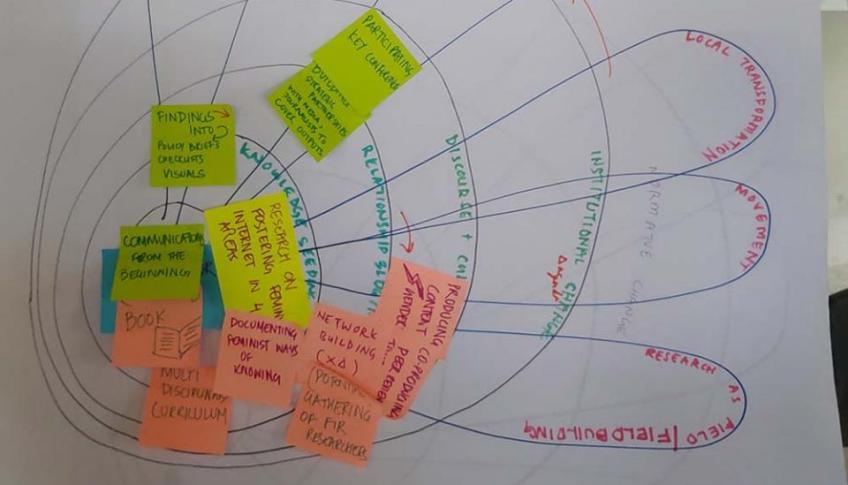 PARTICIPATING
KEY CONFERENCE
STRATEGIC
PARTNERSHIPS
WITH MEDIA,
JOURNALISTS TO
COVER OUTPUTS
FINDINGS
INTO
POLICY BRIEFS
CHECKLISTS
VISUALS
COMMUNICATIONS
FROM THE
BEGINNING
RESEARCH ON
FOSTERING
INTERNET IN 4
AREAS
BOOK
MULTI
CURRICULUM
DOCUMENTING
FEMINIST WAYS
OF
KNOWING
NETWORK
BUILDING
GATHERING
OF FIR
RESEARCHERS
PRODUCING CO-PRODUCING
CONTENT PEER REVIEW
KNOWLEDGE
RELATIONSHIP
DISCOURSE +
INSTITUTIONAL CHANGE
NORMATIVE CHANGE
LOCAL TRANSFORMATION
MOVEMENT
RESEARCH AS FIELD/FIELDBUILDING